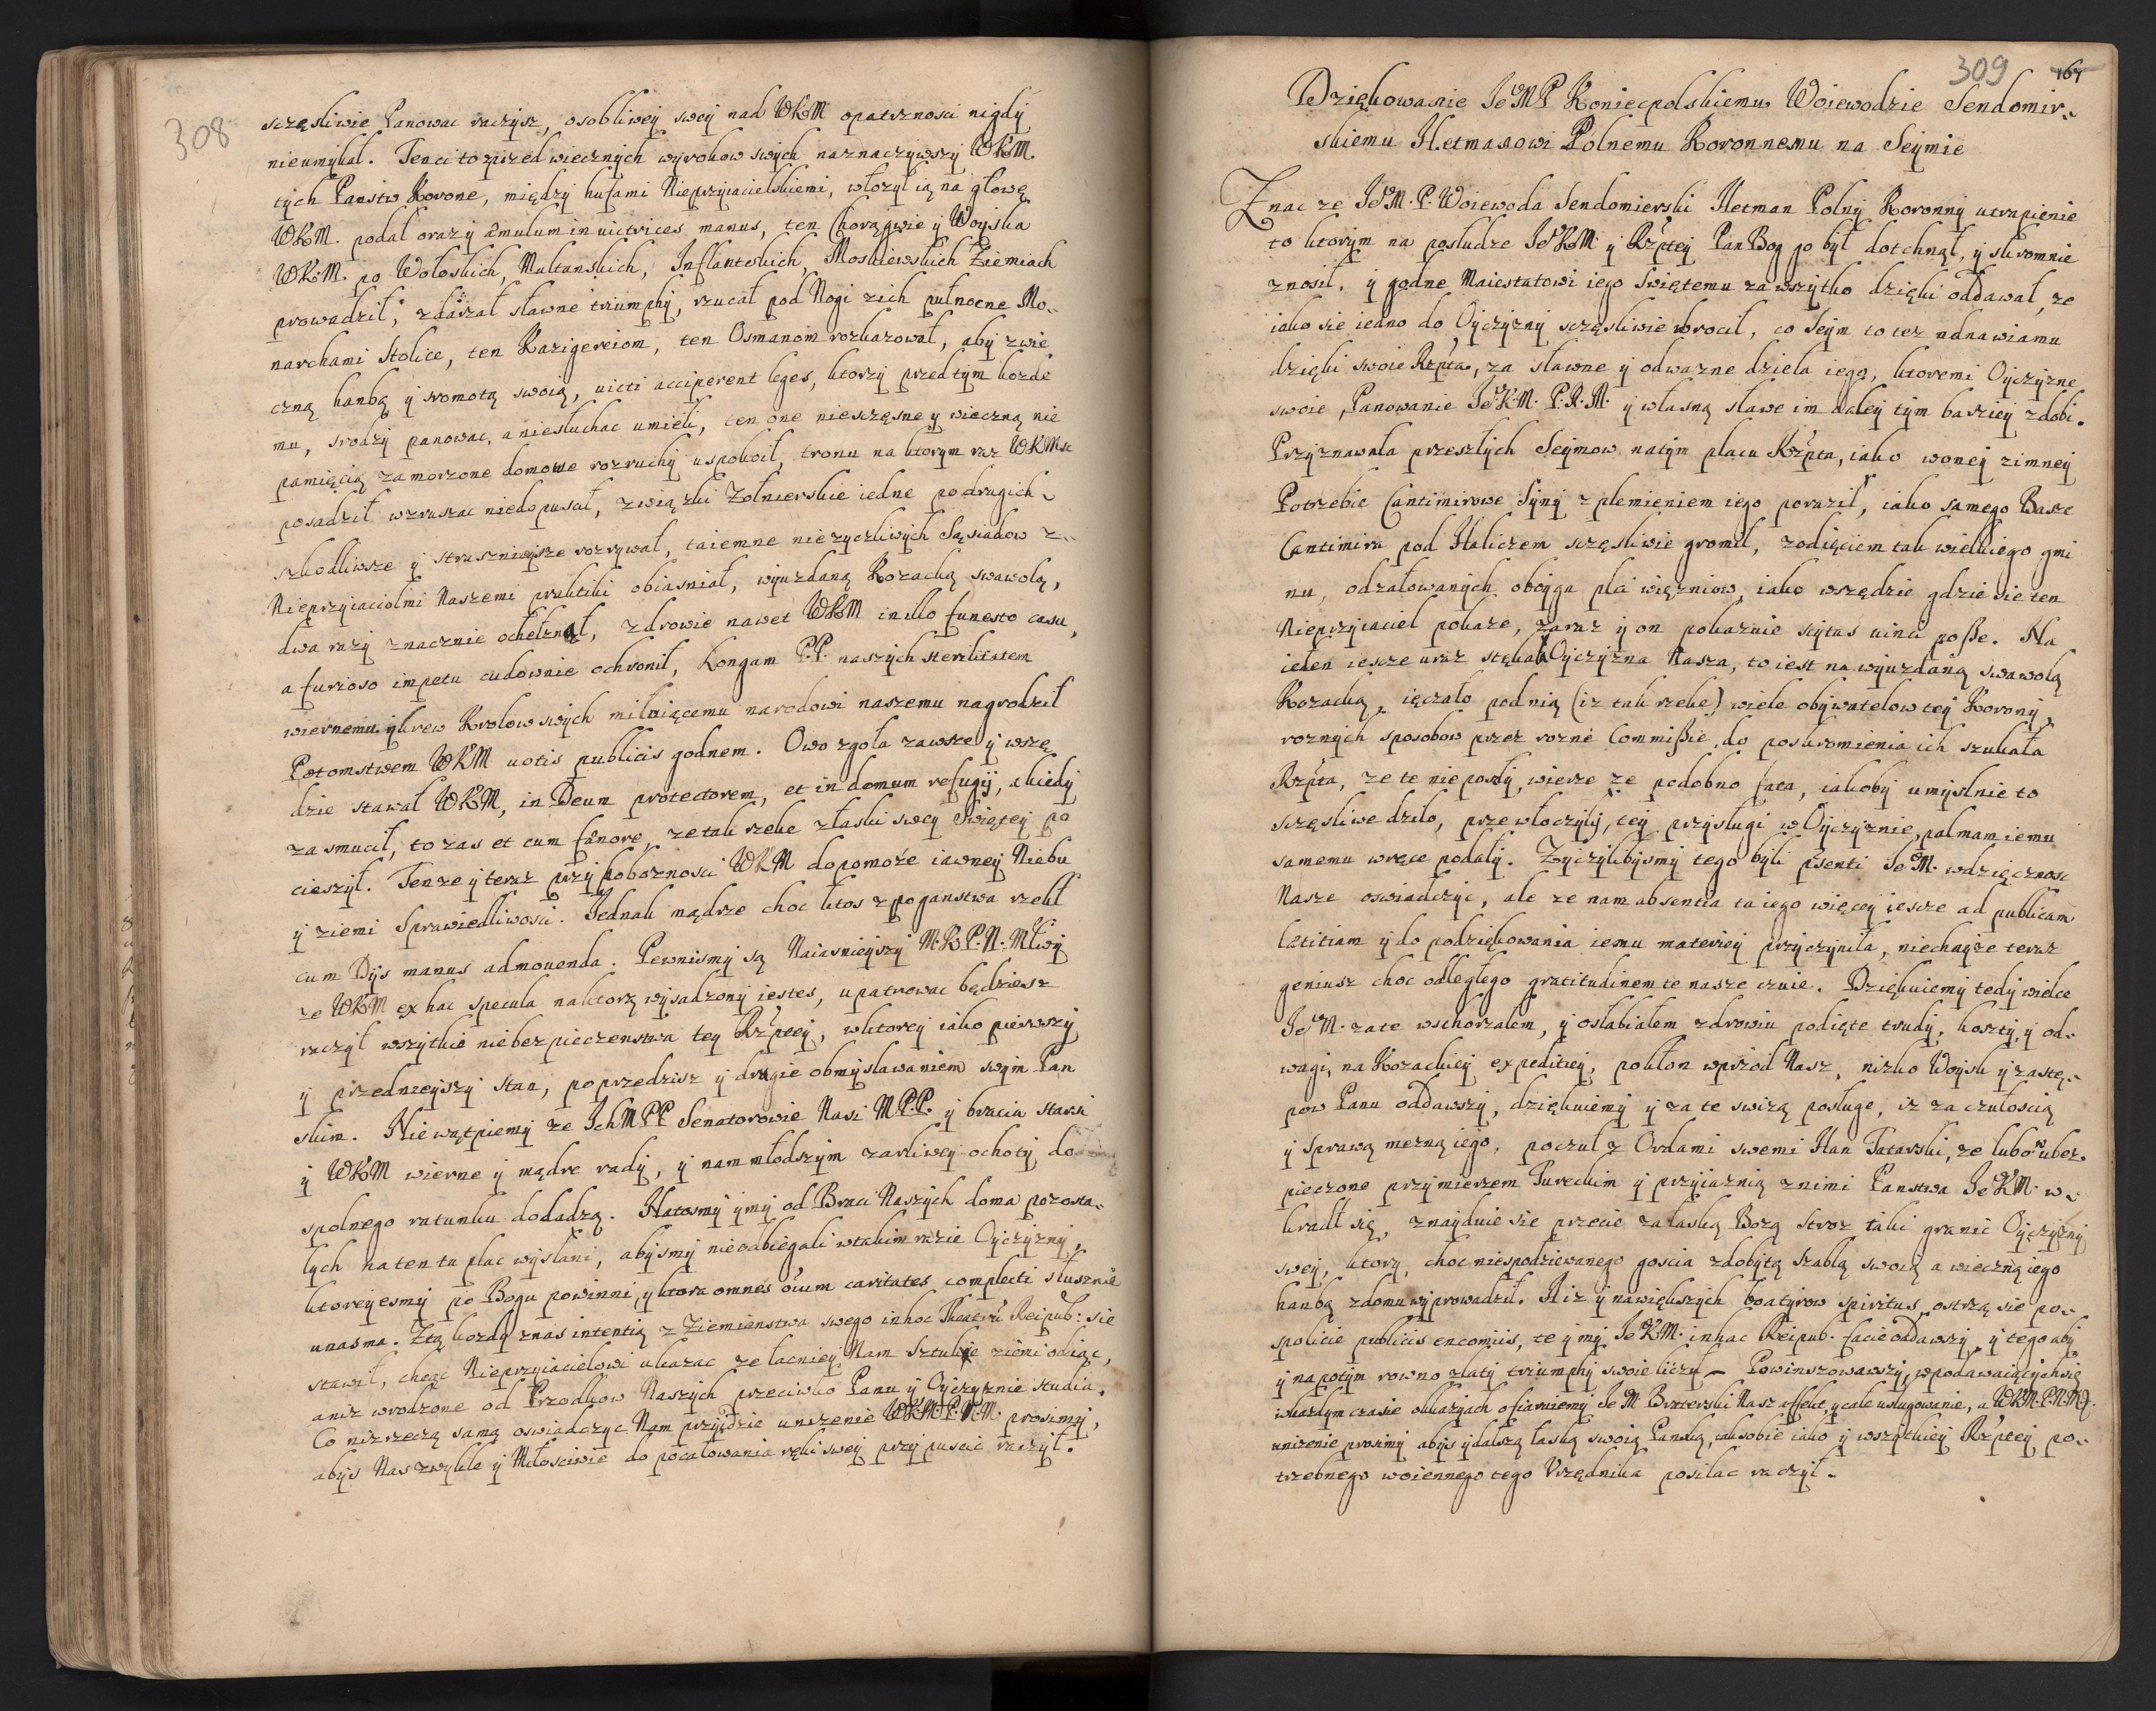 308
sczęsliwie Panowac raczysz, osobliwey swey nad WKM opatrznosci nigdy
nieumykał. Tenci to przed wiecznych wyrokow swych naznaczywszy WKM.
tych Panstw Korone, między hufami Nieprzyiacielskiemi, włozył ią na głowę
WKM. podał oraz y æmulum in victrices manus, ten Chorągwie y Woyska
WKM. po Wołoskich, Multanskich, Inflantskich, Moskiewskich Ziemiach
prowadził, zdarzał sławne triumphy, rzucał pod Nogi zich pułnocne Mo-
narchami Stolice, ten Kazigereiom, ten Osmanom rozkazował, aby zwie
czną hanbą y sromotą swoią, victi acciperent leges, ktorzy przed tym kozde
mu, srodzy panowac, a niesłuchac umieli, ten one niesczęsne y wieczną nie
pamięcią zamorzone domowe rozruchy uspokoił, tronu na ktorym raz WKMsc
posadził wzruszac niedopuscił, związki Zołnierskie iedne po drugich
szkodliwsze y straszniejsze rozrywał, taiemne nieżyczliwych Sąsiadow z
Nieprzyiaciolmi Naszemi praktiki obiasniał, wyuzdaną Kozacką swawolą,
dwa razy znacznie ochełznął, zdrowie nawet WKM in illo funesto casu,
a furioso impetu cudownie ochronił, Longam P.P. naszych sterilitatem
wiernemu y krew Krolow swych miłuiącemu narodowi naszemu nagrodził
Potomstwem WKM votis publicis godnem. Owo zgoła zawsze y wszę
dzie stawał WKM, in Deum protectorem, et in domum refugij, a kiedy
zasmucił, to zas et cum fænore, ze tak rzeke z łaski swey Swiętey po
cieszył. Tenze y teraz przy pobożnosci WKM dopomoże iawney Niebu
y ziemi Sprawiedliwosci. Jednak mądrze choc ktos z poganstwa rzekł
cum Dijs manus admouenda. Pewnismy są Naiasnieyszy M.K.P.N. Młwy
ze WKM ex hac specula na ktorą wysadzony iestes, upatrowac będziesz
raczył wszytkie niebezpieczenstwa tey Rzptey, w ktorey iako pierwszy
y przednieyszy stan, poprzedzisz y drugie obmyslawaniem swym Pan
skim. Niewątpiemy ze IchMPP Senatorowie Nasi M.P.P. y bracia starsi
y WKM wierne y mądre rady, y nam młodszym zarliwey ochoty do
spolnego ratunku dodadzą. Natosmy y my od Braci Naszych doma pozosta-
łych na ten tu plac wysłani, abysmy nieodbiegali w takim razie Oyczyzny,
ktoreyesmy po Bogu powinni, y ktora omnes oium caritates complecti słusznie
u nas ma. Z tą kozdy z nas intentią z Ziemienstwa swego in hoc Theatru Reipub: sie
stawił, chcąc Nieprzyiacielowi ukazac ze łacniey Nam sztukie ziemi odiąc,
aniz wrodzone od Przodkow Naszych przeciwko Panu y Oyczyznie studia.
Co niz rzeczą samą oswiadczyc Nam przydzie unizenie WKM.P.N.M. prosimy,
abys Nas zwykle y Miłosciwie do pocałowania ręki swey przypuscic raczył.
309 164
Dziękowanie JeoMP Koniecpolskiemu Woiewodzie Sendomir-
skiemu Hetmanowi Polnemu Koronnemu na Seymie
Znac ze JeoM.P. Woiewoda Sendomierski Hetman Polny Koronny utrapienie
to ktorym na posłudze JeoKM y Rzptey Pan Bog go był dotchnął, y skromnie
znosił, y godne Maiestatowi iego Swiętemu za wszytko dzięki oddawał, ze
iako sie iedno do Oyczyzny sczęsliwie wrocił, co Seym to tez odnawiamu
dzięki swoie Rzpta, za sławne y odwazne dzieła iego, ktoremi Oyczyzne
swoie, Panowanie JeoK.M. P.N.M. y własną sławe im daley tym barziey zdobi.
Przyznawała przeszłych Seymow na tym placu Rzpta, iako w oney zimney
Potrzebie Cantimirowe Syny z plemieniem iego poraził, iako samego Basze
Cantimira pod Haliczem sczęsliwie gromił, z odięciem tak wielkiego gmi
nu, odzałowanych oboyga płci więzniow, iako wszędzie gdzie sie ten
Nieprzyiaciel pokaze, zaraz y on pokazuie scytas vinci poße. Na
ieden iescze uraz stękała Oyczyzna Nasza, to iest na wyuzdaną swawolą
Kozacką, ięczało pod nią (iz tak rzeke) wiele obywatelow tey Korony,
roznych sposobow przez rozne Commißie, do poskromienia ich szukała
Rzpta, ze te nie posły, wierze ze podobno fata, iakoby umyslnie to
sczęsliwe dzilo, przewłoczyły, tey przysługi w Oyczyznie, palmam iemu
samemu w ręce podały. Zyczylibysmy tego byli psenti JeoM. wdzięcznosc
Nasze oswiadczyc, ale ze nam absentia ta iego więcey iescze ad publicam
lætitiam y do podziękowania iemu materiey przyczyniła, niechayze teraz
geniusz choc odległego gratitudinem te nasze czuie. Dziękuiemy tedy wielce
JeoM. za te w schorzałem, y osłabiałem zdrowiu podięte trudy, koszty, y od-
wagi, na Kozackiey expeditiey, pokłon wprzod Nasz, nizko Woysk y zastę-
pow Panu oddawszy, dziękuiemy y za te swizą posługe, iz za czułoscią
y Sprawą mezną iego, poczuł z Ordami swemi Han Tatarski, ze lubo w ubez-
pieczone przymierzem Tureckim y przyiaznią z nimi Panstwa JeoKM. w-
kradł się, znayduie sie przecie za łaską Bozą stroz taki granic Oyczyzny
swey, ktory, choc niespodziewanego goscia zdobytą szablą swoią a wieczną iego
hanbą z domu wyprowadził. A iz y nawiększych boatyrow spiritus, ostrzą sie po-
spolicie publicis encomiis, te y my JeoKM. in hac Reipub. facie oddawszy, y tego aby
y napotym rowno z laty triumphy swoie liczył – Powinszowawszy, w podawaiących się
w kazdym czasie okkazyach ofiaruiemy JeoM Braterski Nasz affekt, y całe usługowanie, a WKM.P.N.M.
unizenie prosimy abys y dalszą łaską swoią Panską, tak sobie iako y wszytkiey Rzptey po-
trzebnego woiennego tego Urzędnika posilac raczył.